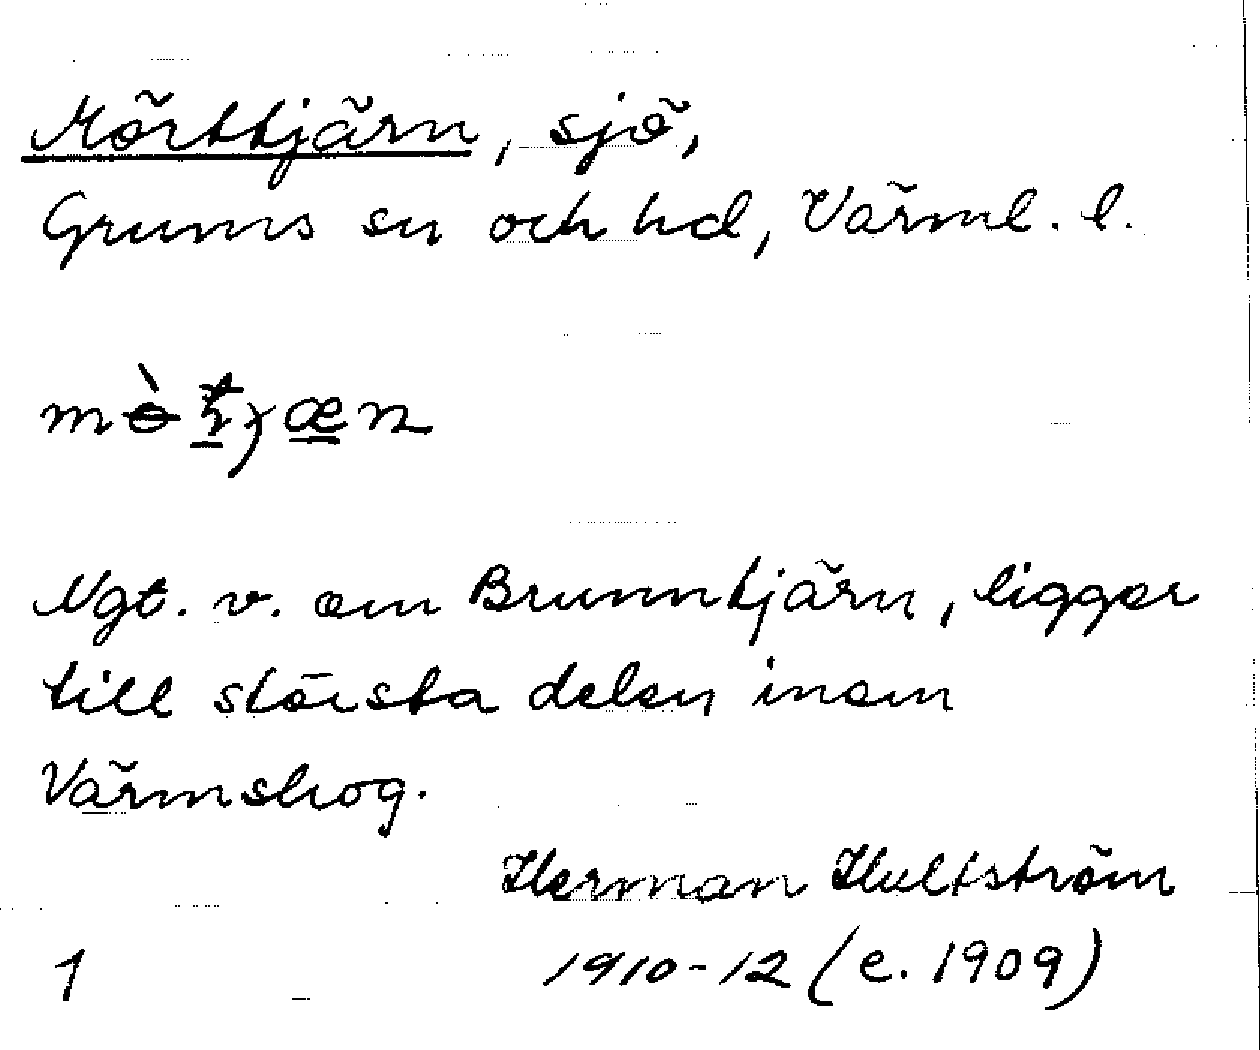 Mörttjärn, sjö,
Grums sn och hd, Värml. l.
Ngt. v. om Brunntjärn, ligger
till största delen inom
Värmskog.
Herman Hultström
1910-12 (e. 1909)
1